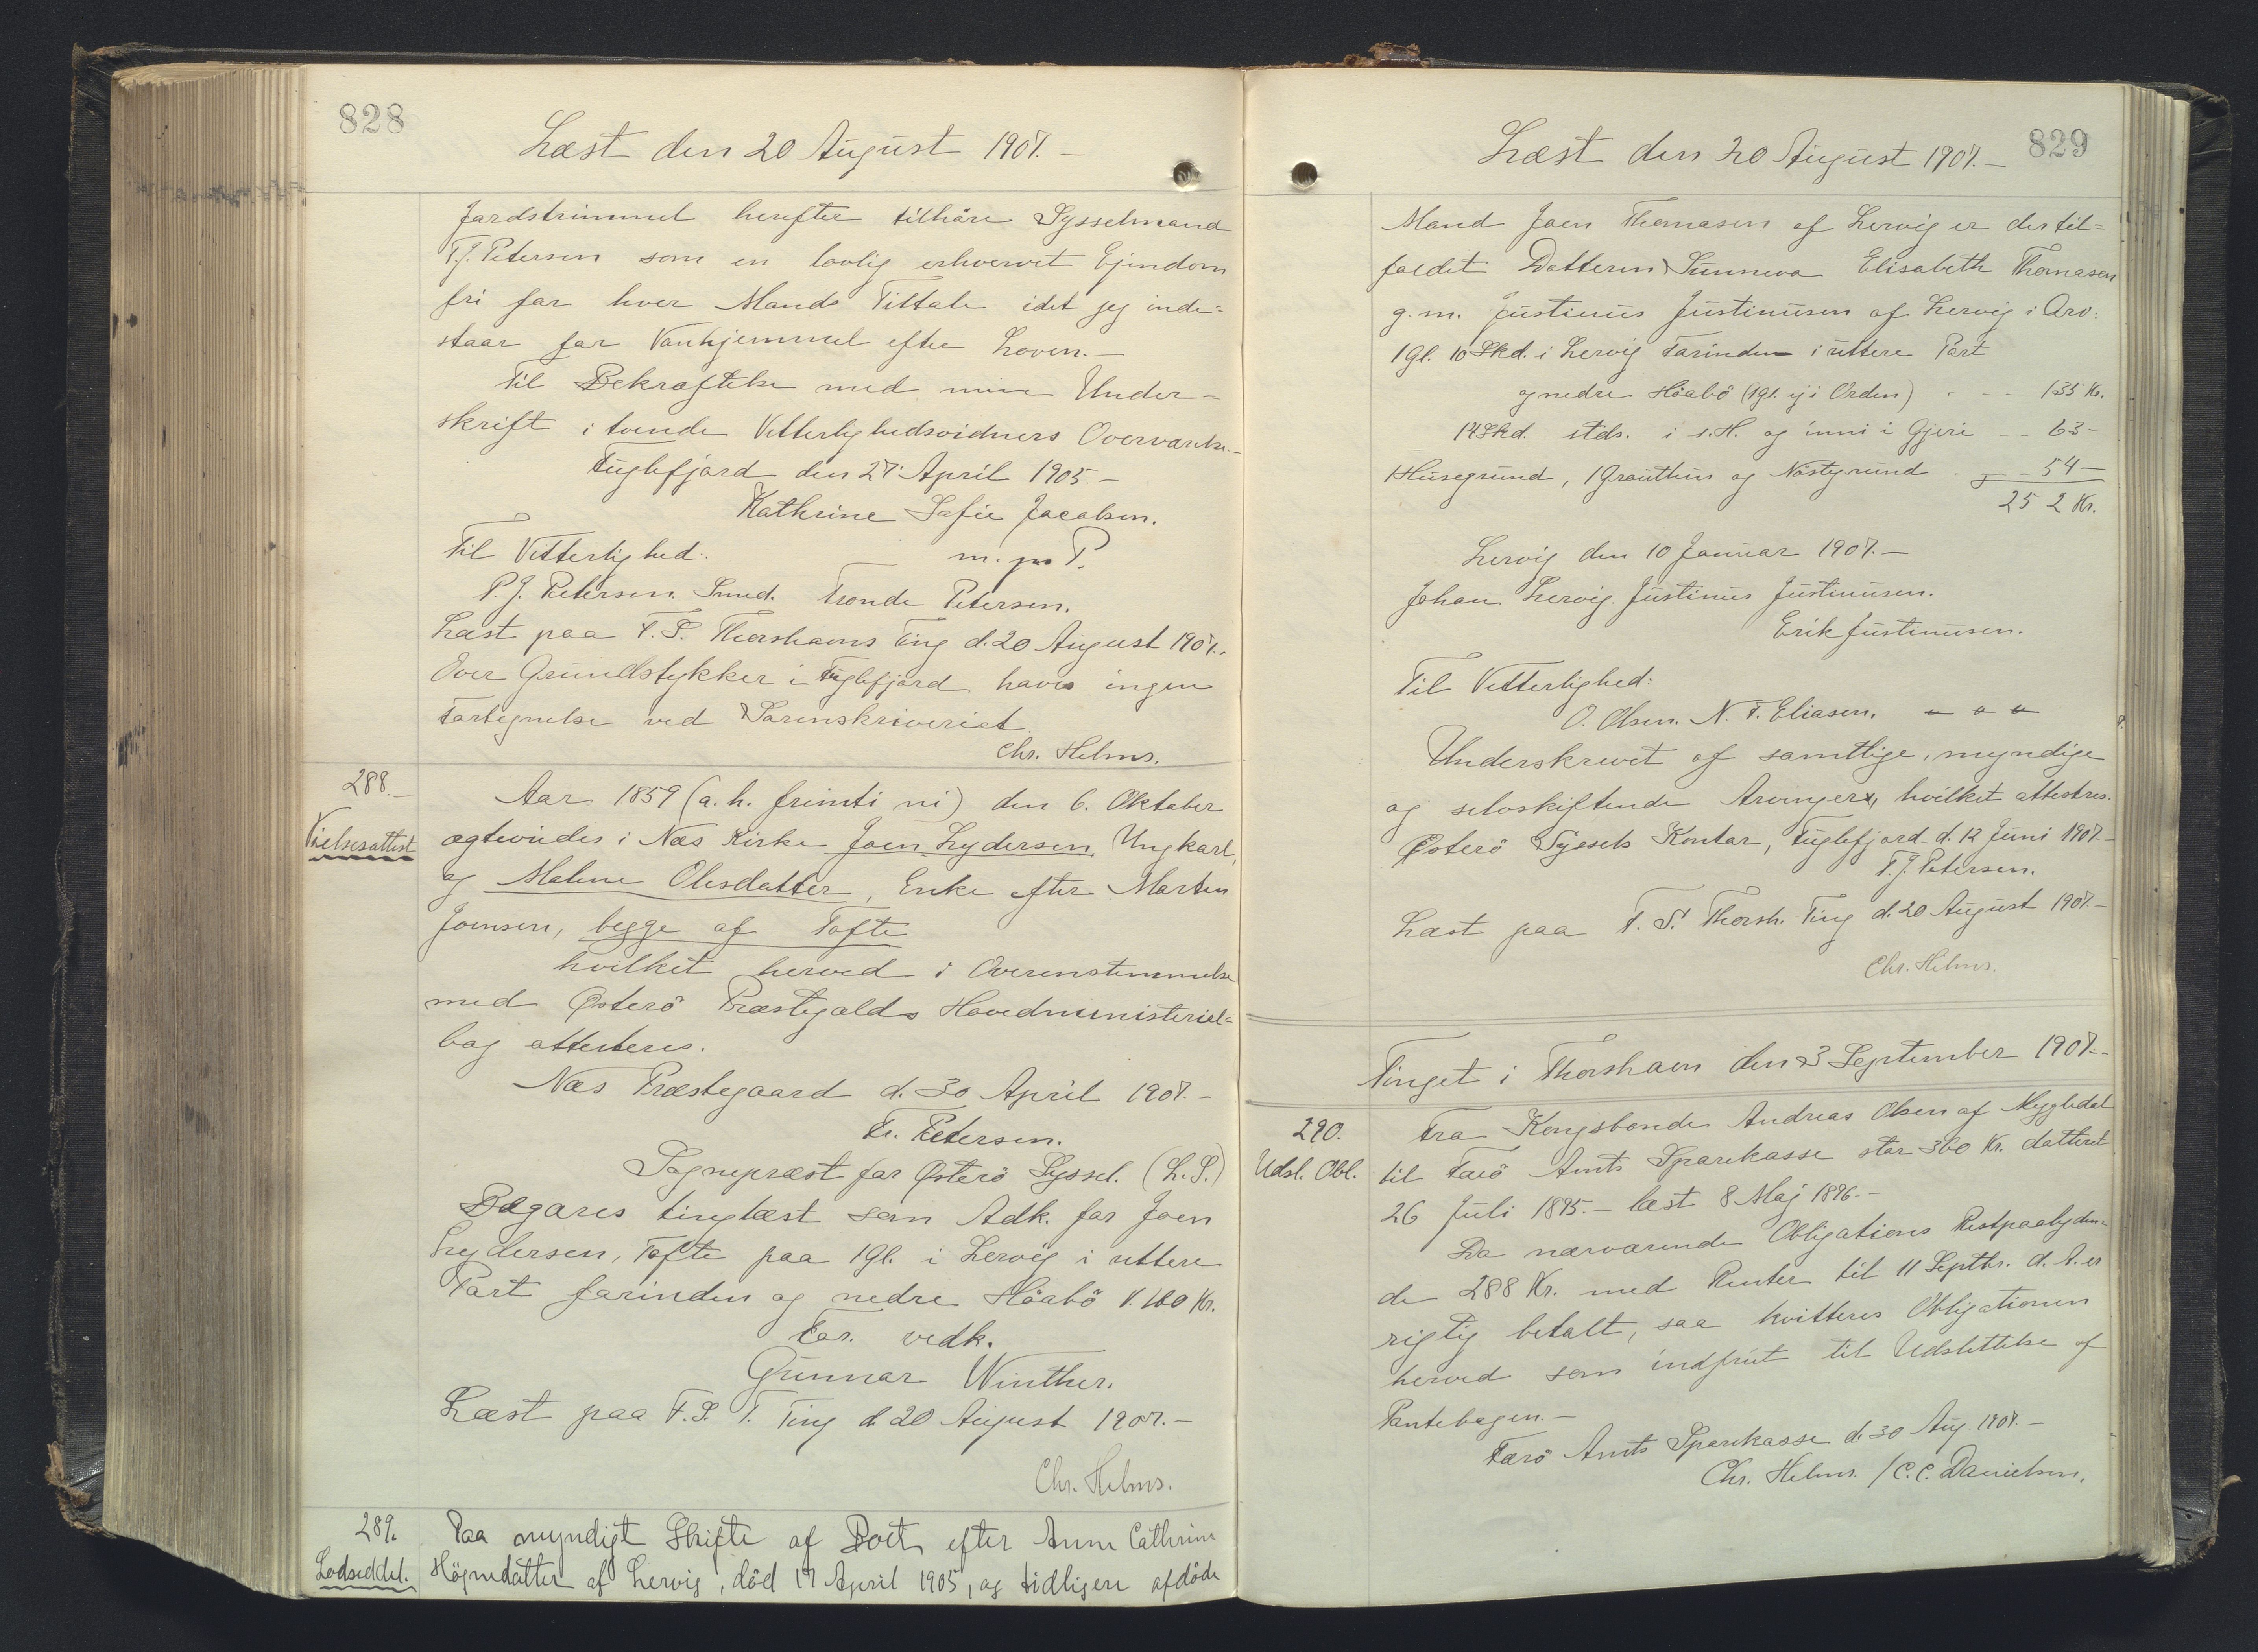 828
Læst den 20 August 1907.-
Jordstrimmel herefter tilhöre Sysselmand
T.J. Petersen som en lovlig erhvervet Ejendom
fri for hver Mands Tiltale idet jeg inde=
staar for Vanhjemmel efter Loven.-
Til Bekræftelse med min Under=
skrift i tvende Vitterlighedsvidners Overværelse.-
Fuglefjord den 27' April 1905.-
Kathrine Sofie Jacobsen.
Til Vitterlighed: m. p. P.
P. J. Petersen. Smed. Tronde Petersen.
Læst paa F. S. Thorshavns Ting d. 20 August 1907.
Over Grundstykker i Fuglefjord haves ingen
Fortegnelse ved Sorenskriveriet.
Chr. Helms.
288.-
Vielsesattest
Aar 1859 (a. h. femti ni) den 6. Oktober
ægteviedes i Næs Kirke Joen Lydersen, Ungkarl,
og Malene Olesdatter, Enke efter Morten
Joensen, begge af Tofte
hvilket herved i Overensstemmelse
med Østerö Præstegjelds Hovedministeriel=
bog attesteres.
Næs Præstegaard d. 30 April 1907.-
Fr. Petersen.
Sognepræst for Østerö Syssel. (L.S.)
Begæres tinglæst som Adk. for Joen
Lydersen, Tofte paa 1 Gl. i Lervig i uttere
Part forinden og nedre Höabö V. 100 Kr.
For. vedk.
Gunnar Winther.
Læst paa F. S. T. Ting d. 20 August 1907.-
Chr. Helms.
289.
Lodseddel.
Paa myndigt Skifte af Boet efter Anne Cathrine
Högnedatter af Lervig, död 17 April 1905, og tidligere afdöde
829
Læst den 20 August 1907.-
Mand Joen Thomasen af Lervig er der til=
faldet Datteren Sunneva Elisabeth Thomasen
g. m. Justinus Justinusen af Lervig i Arv:
1 Gl. 10 Skd. i Lervig forinden i uttere Part
og nedre Höabö (1 gl. ej i Orden) - - - 135 Kr.
14 Skd. stds. i s. H. og inni i Gjeri - - 63 -
1 Husegrund, 1 Grouthus og Nöstgrund - - 54 -
252 Kr.
Lervig den 10 Januar 1907.-
Johan Lervig. Justinus Justinusen.
Erik Justinusen.
Til Vitterlighed:
O. Olsen. N. F. Eliasen.
Underskrevet af samtlige, myndige
og selvskiftende Arvinger, hvilket attesteres.
Østerö Syssels Kontor, Fuglefjord d. 12 Juni 1907.-
T. J. Petersen.
Læst paa F. S. Thorsh. Ting d. 20 August 1907.-
Chr. Helms.
Tinget i Thorshavn den 3 September 1907.-
290.
Udsl. Obl.
Fra Kongsbonde Andreas Olsen af Mygledal
til Færö Amts Sparekasse stor 360 Kr. datteret
26 Juli 1895.- læst 8 Maj 1896.-
Da nærværende Obligations Restpaalyden=
de 288 Kr. med Renter til 11 Septbr. d. A. er
rigtig betalt, saa kvitteres Obligationen
herved som indfriet til Udslettelse af
Pantebogen.-
Færö Amts Sparekasse d. 30 Aug. 1907.-
Chr. Helms. / C. C. Danielsen.